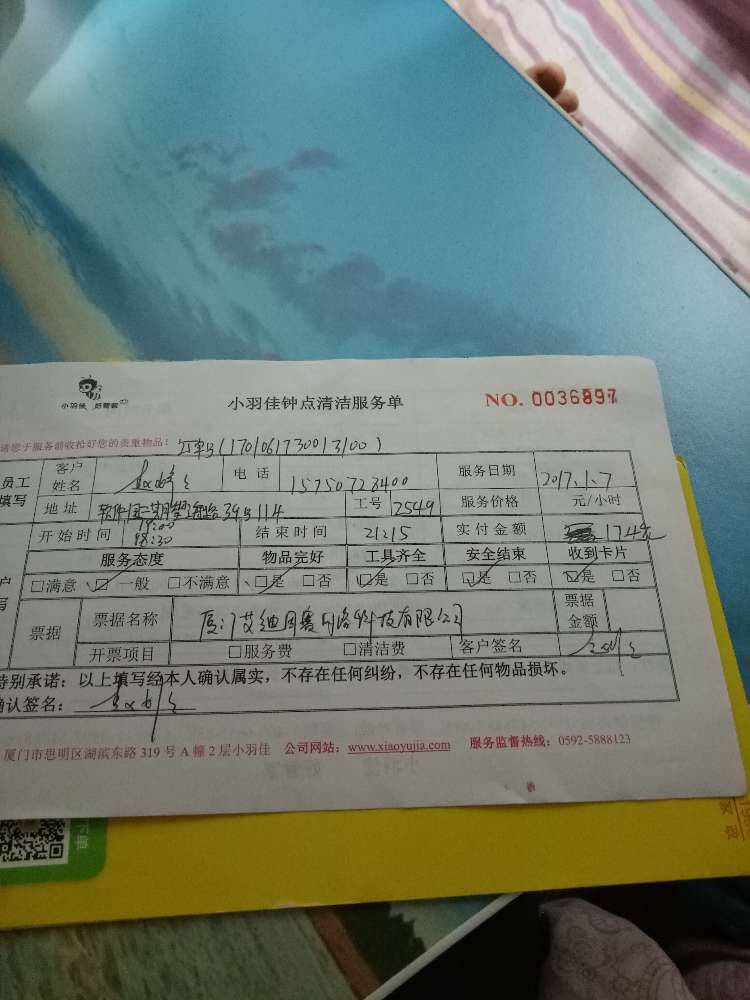 小羽佳 好帮家
小羽佳钟点清洁服务单
NO. 0036897
请您于服务前收拾好您的贵重物品:
订单号(1701061730013100)
员工填写 客户姓名 电话 15750723400 服务日期 2017.1.7
地址 软件园二期望海路39号114 工号 2549 服务价格 元/小时
开始时间 19:00 18:30 结束时间 21:15 实付金额 174元
服务态度 物品完好 工具齐全 安全结束 收到卡片
□满意 □一般 □不满意 □是 □否 □是 □否 □是 □否 □是 □否
票据 票据名称 厦门艾迪网赛网络科技有限公司 票据金额
开票项目 □服务费 □清洁费 客户签名
特别承诺:以上填写经本人确认属实,不存在任何纠纷,不存在任何物品损坏。
确认签名:
厦门市思明区湖滨东路 319 号 A 幢 2 层小羽佳 公司网站:www.xiaoyujia.com 服务监督热线:0592-5888123